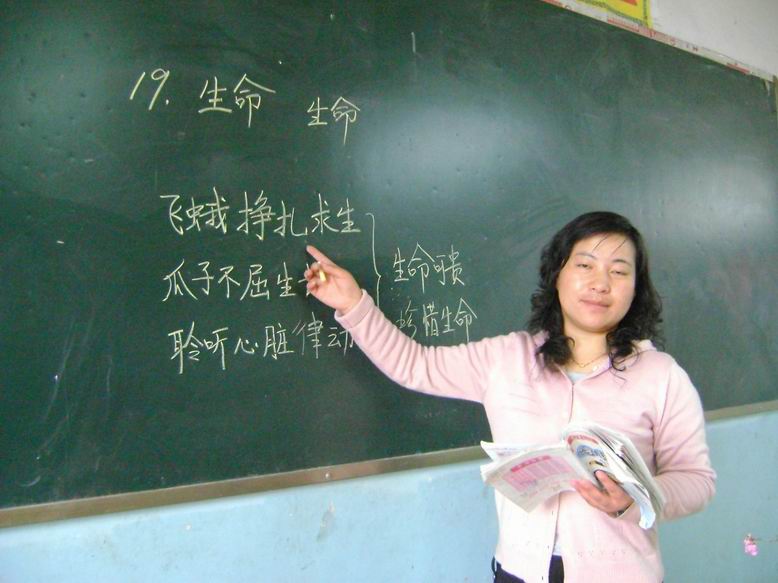 19. 生命 生命
飞蛾挣扎求生
瓜子不屈生
聆听心脏律动
生命可贵
珍惜生命